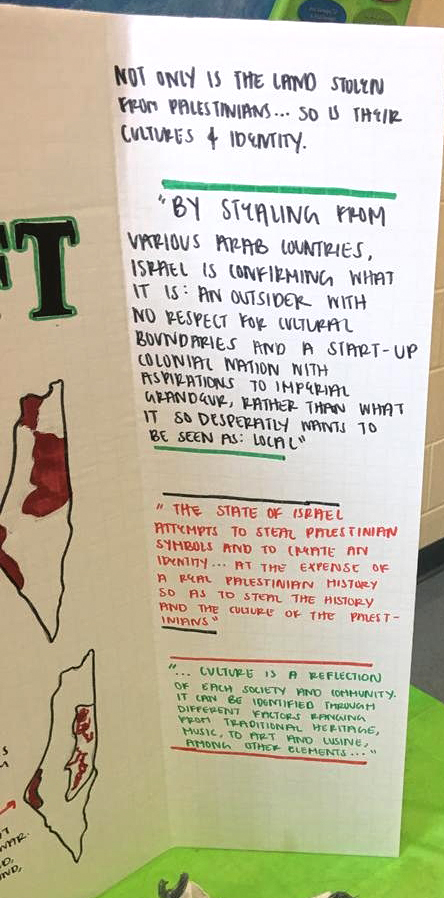 NOT ONLY IS THE LAND STOLEN
FROM PALESTINIANS... SO IS THEIR
CULTURES & IDENTITY.
"BY STEALING FROM
VARIOUS ARAB COUNTRIES,
ISRAEL IS CONFIRMING WHAT
IT IS: AN OUTSIDER WITH
NO RESPECT FOR CULTURAL
BOUNDARIES AND A START-UP
COLONIAL NATION WITH
ASPIRATIONS TO IMPERIAL
GRANDEUR, RATHER THAN WHAT
IT SO DESPERATLY WANTS TO
BE SEEN AS: LOCAL"
"THE STATE OF ISRAEL
ATTEMPTS TO STEAL PALESTINIAN
SYMBOLS AND TO CREATE AN
IDENTITY... AT THE EXPENSE OF
A REAL PALESTINIAN HISTORY
SO AS TO STEAL THE HISTORY
AND THE CULTURE OF THE PALEST-
INIANS"
"... CULTURE IS A REFLECTION
OF EACH SOCIETY AND COMMUNITY.
IT CAN BE IDENTIFIED THROUGH
DIFFERENT FACTORS RANGING
FROM TRADITIONAL HERITAGE,
MUSIC, TO ART AND CUSINE,
AMONG OTHER ELEMENTS..."
T